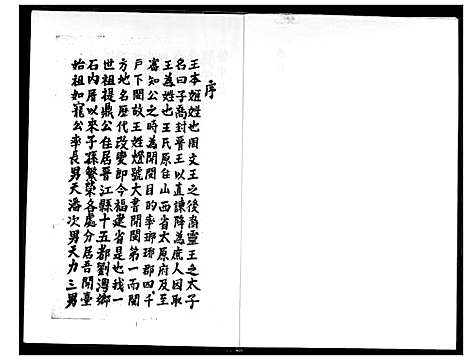 序
王本姬姓也周文王之後周靈王之太子
名曰子喬封晉王以直諫降為庶人因取
王為姓也王氏原在山西省太原府及至
審知公之時為開閩目的率瑯琊郡四千
戶下閩故王姓燈號大書開閩第一而閩
方地名歷代改變即今福建省是也我一
世祖提鼎公住居晉江縣十五都劉灣鄉
石內厝以來子孫繁榮各處分居吾開臺
始祖如寵公率長男天湻次男天力三男